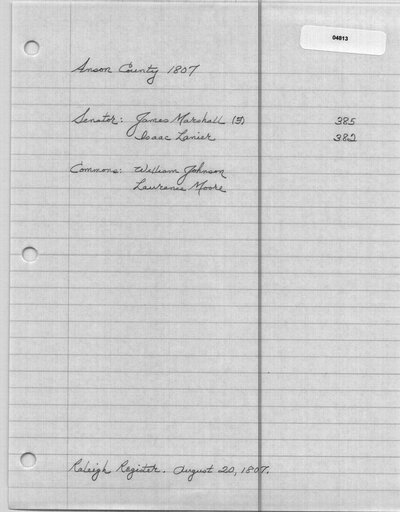 04813
Anson County 1807
Senator: James Marshall (3) 385
Isaac Lanier 382
Commons: William Johnson
Laurence Moore
Raleigh Register. August 20, 1807.